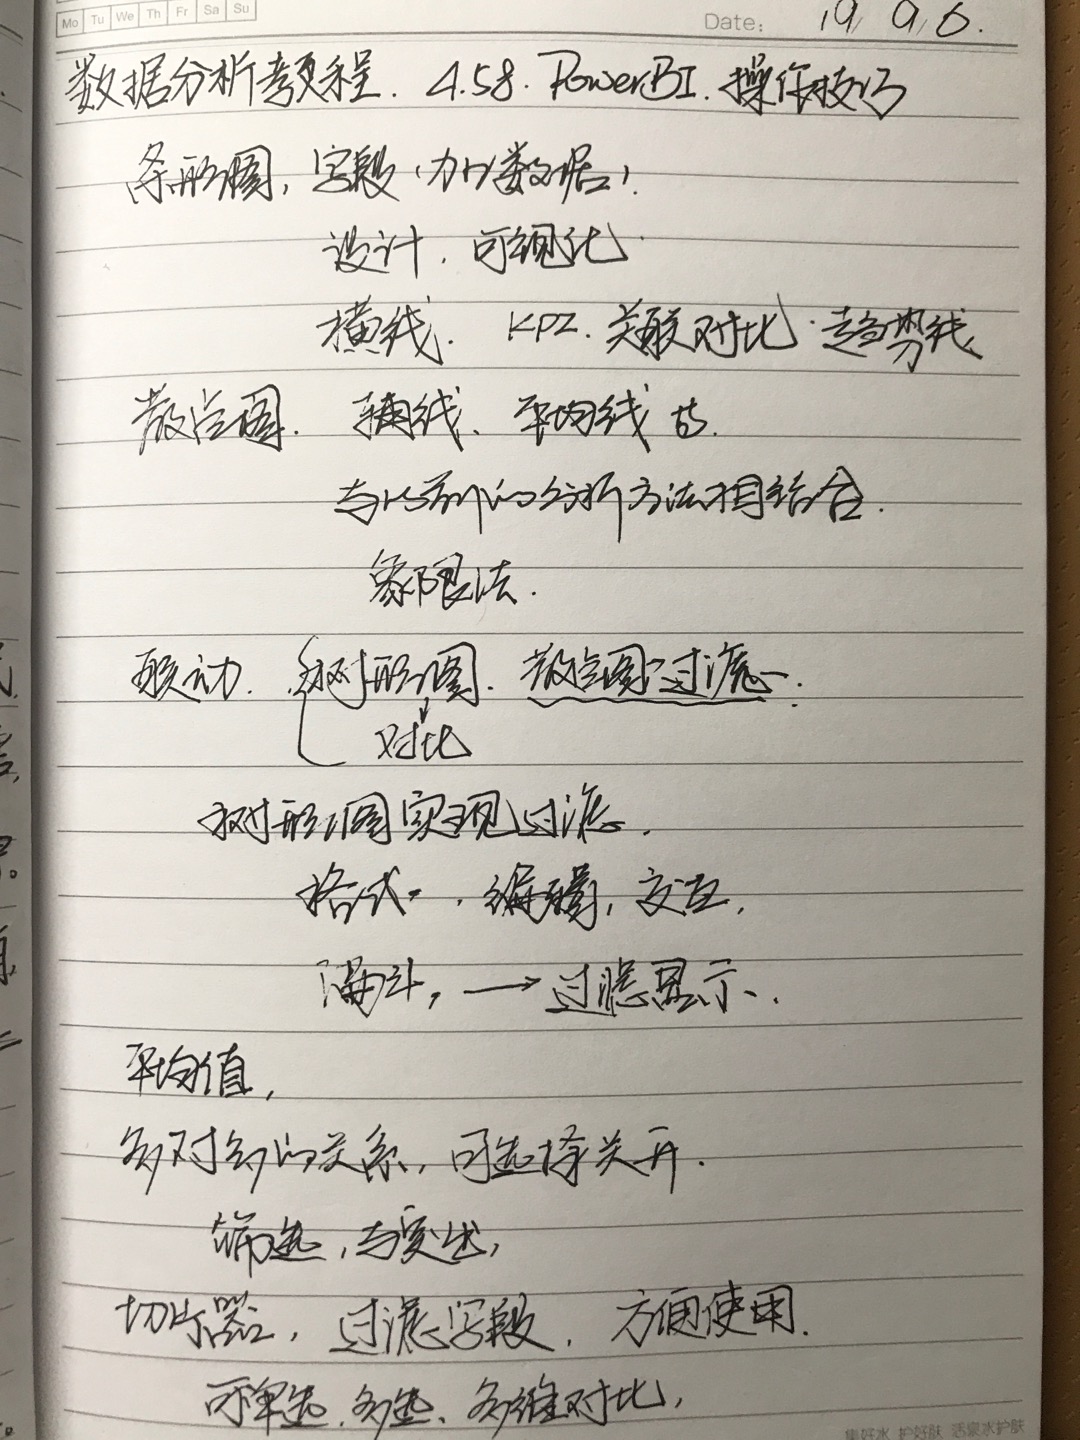 Mo Tu We Th Fr Sa Su
Date: 19/ 9/ 6.
数据分析教程. 4.58. PowerBI. 操作技巧
条形图, 字段(加以数据).
设计. 可视化.
横线. KPI. 关联对比. 趋势线
散点图. 辅线、平均线 等.
与以前的分析方法相结合.
象限法.
联动. 树形图. 散点图:过滤.
对比
树形图实现过滤.
格式. 编辑, 交互,
漏斗, → 过滤显示.
平均值,
多对多的关系, 可选择关开.
筛选, 与突出,
切片器, 过滤字段, 方便使用.
可单选、多选、多维对比,
集好水 护好肤 活泉水护肤